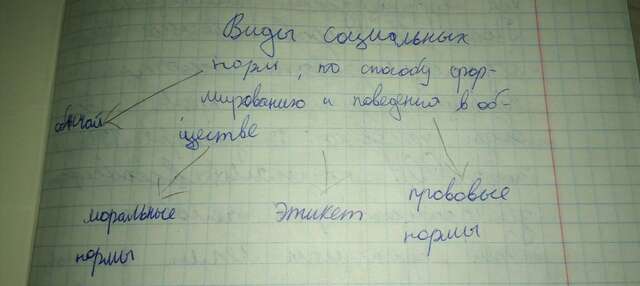 Виды социальных
норм, по способу фор-
мированию и поведения в об-
ществе
обычай
моральные
нормы
Этикет
прововые
нормы